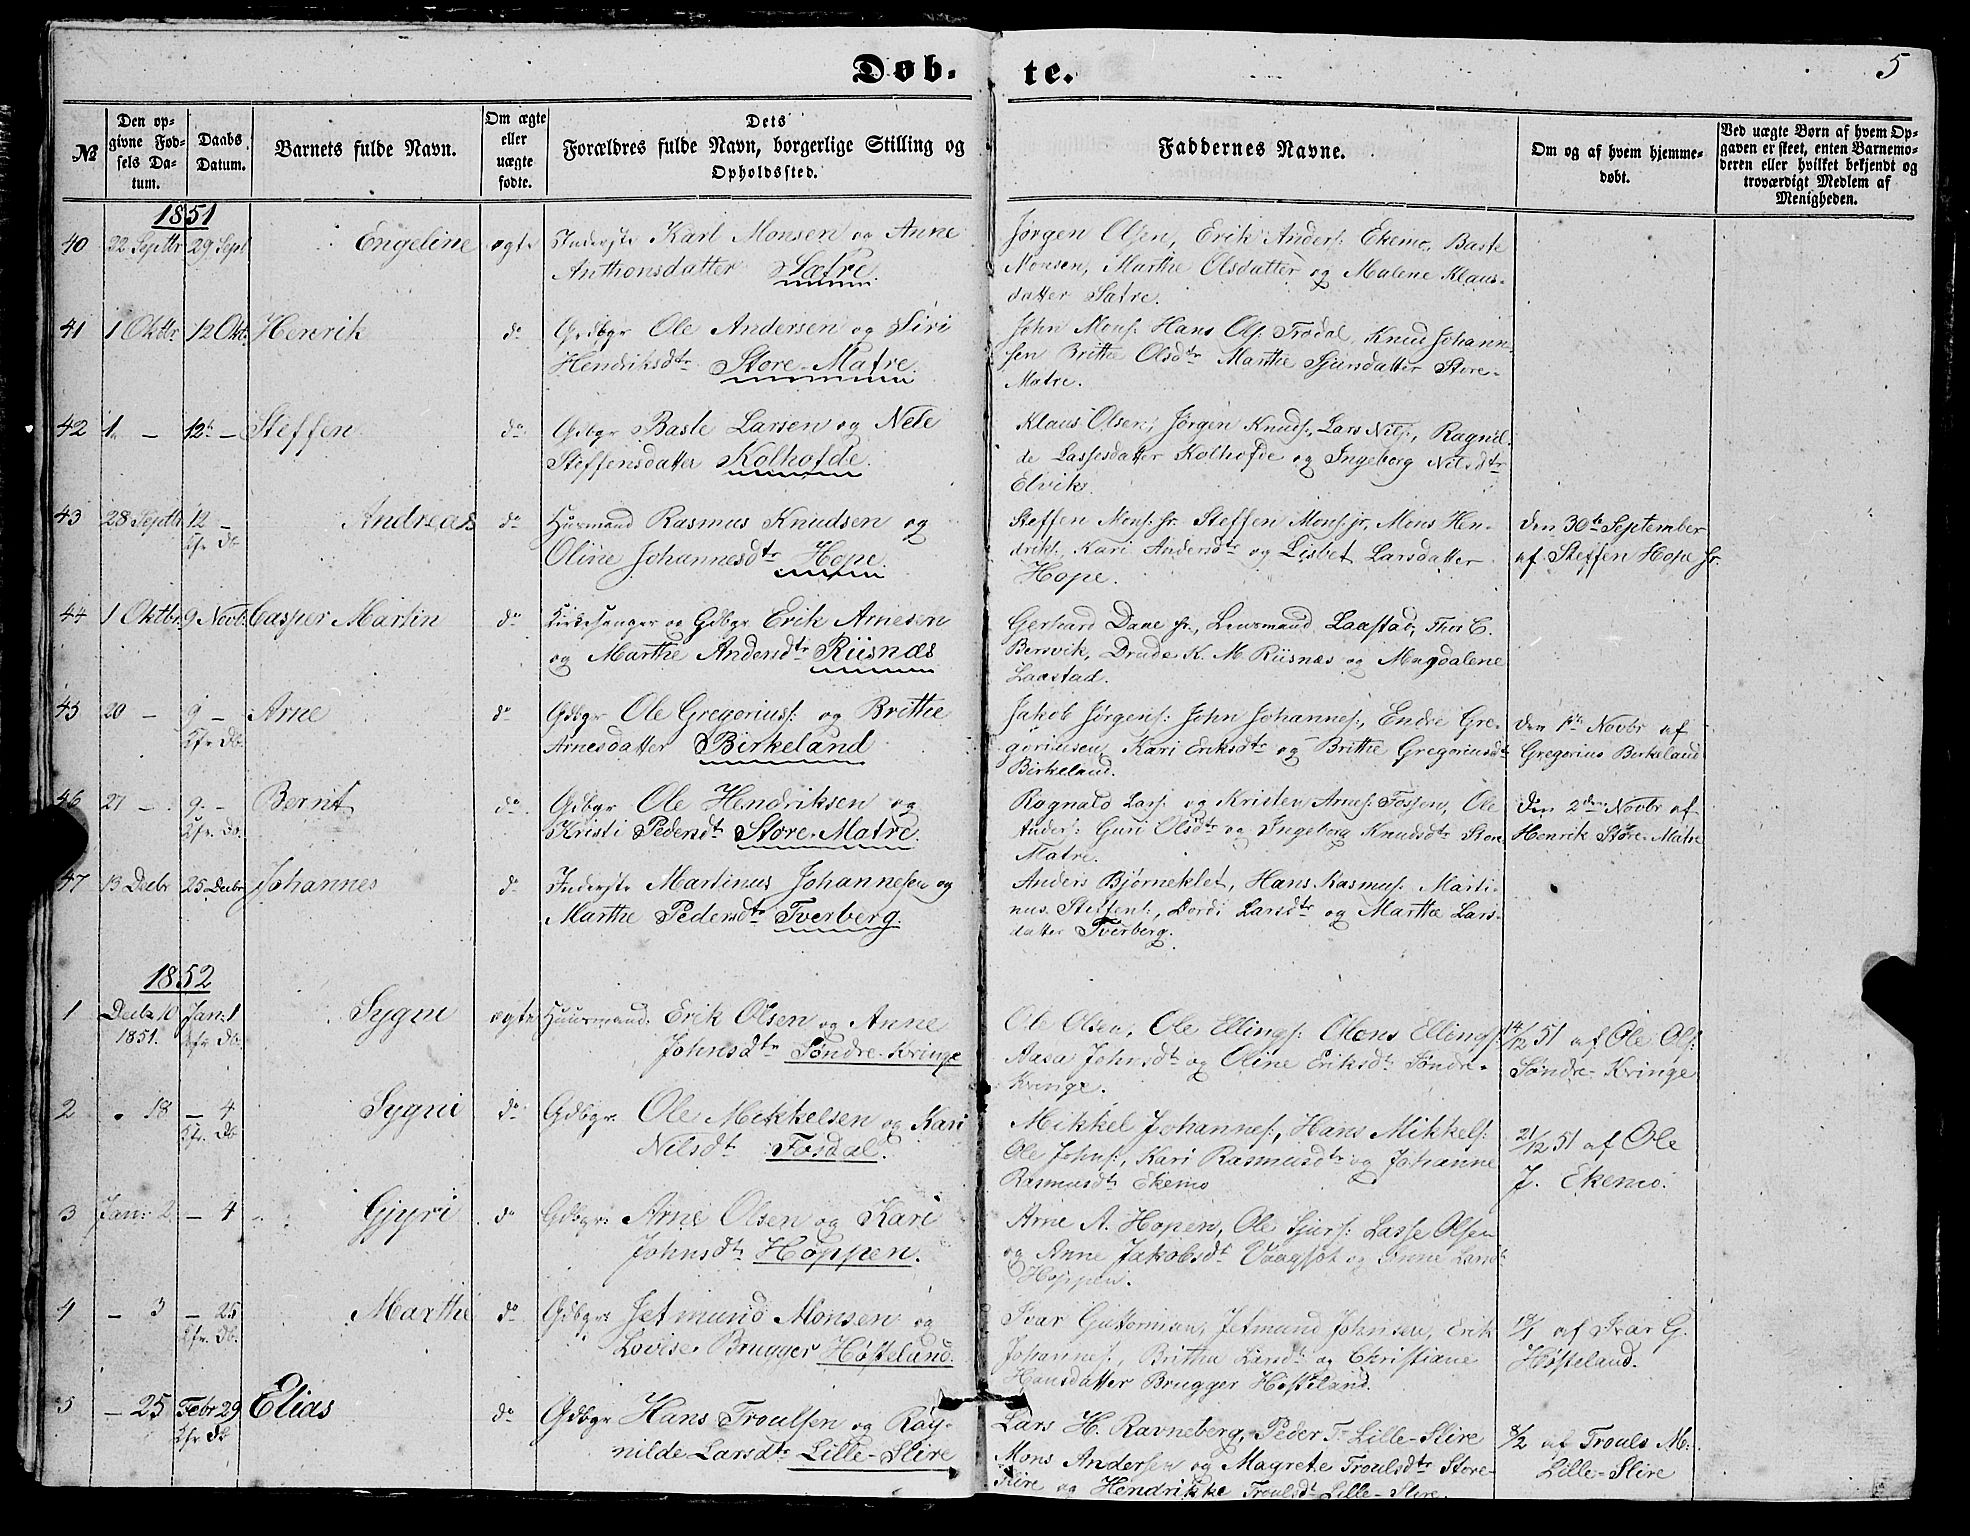 Døb- te.
5
№
Den op-
givne Fød-
sels Da-
tum.
Daabs
Datum.
Barnets fulde Navn.
Om ægte
eller
uægte
fødte.
Dets
Forældres fulde Navn, borgerlige Stilling og
Opholdssted.
Faddernes Navne.
Om og af hvem hjemme-
døbt.
Ved uægte Børn af hvem Op-
gaven er skeet, enten Barnemo-
deren eller hvilket bekjendt og
troværdigt Medlem af
Menigheden.
1851
40 22 Septbr 29 Sept Engeline ægte Inderste Karl Monsen og Anne
Anthonsdatter Sætre.
Jørgen Olsen, Erik Anders: Ekemo, Baste
Monsen, Marthe Olsdatter og Malene Klaus-
datter Sætre.
41 1 Oktbr 12 Okt. Henrik do Gdbgr Ole Andersen og Siri
Hendriksdtr Store-Matre.
John Mons: Hans Ols: Trodal, Knud Johann-
sen Brithe Olsdtr Marthe Sjursdatter Store-
Matre.
42 1. – 12te – Steffen do Gdbgr Baste Larsen og Nele
Steffensdatter Kolhofde.
Klaus Olsen, Jørgen Knuds:, Lars Nils:, Ragnil-
de Lassesdatter Kolhofde og Ingeborg Nilsdtr
Elvik.
43 28 Septbr 12 – Andreas do Husmand Rasmus Knudsen og
Kfr Db Oline Johannesdtr Hope.
Steffen Mons: sr. Steffen Mons: jr, Mons Hen-
driks:, Kari Andersdtr og Lisbet Larsdatter
Hope.
den 30te September
af Steffen Hope sr.
44 1 Oktbr. 9 Novb. Casper Martin do Kirkesanger og Gdbgr Erik Arnesen
og Marthe Andersdtr Riisnæs
Gerhard Dane sr., Lensmand Laastad, Thor C.
Bersvik, Drude K. M. Riisnæs og Magdalene
Laastad.
45 20 – 9 – Arne do Gdbgr Ole Gregorius: og Brithe
Kfr Db. Arnesdatter Birkeland
Jakob Jørgens: John Johannes:, Endre Gre-
goriusen, Kari Eriksdtr og Brithe Gregoriusdt
Birkeland.
den 1ste Novbr af
Gregorius Birkeland
46 27 – 9. – Bernt do Gdbgr Ole Hendriksen og
Kfr. Db. Kristi Pedersdt Store-Matre.
Ragnald Lass: og Kristen Arnes: Fossen, Ole
Anders: Guri Olsdtr og Ingeborg Knudsdtr Store
Matre.
den 2den Novbr af
Henrik Store-Matre
47 13 Decbr 25 Decbr Johannes do Inderste Martinus Johannesen og
Marthe Pedersdtr Tverberg.
Anders Bjørneklet, Hans Rasmus: Marti-
nus Steffens:, Dordi Larsdtr og Marthe Lars-
datter Tverberg.
1852
1 Decbr 10 Jan: 1 Sygni ægte Huusmand Erik Olsen og Anne
1851. Kfr Db. Johnsdtr Søndre-Kringe
Ole Olsen, Ole Ellings: Mons Ellings:
Aasa Johnsdt og Oline Eriksdt Søndre-
Kringe.
14/12 51 af Ole Ols:
Søndre-Kringe
2 " 18 – 4 Sygni do Gdbgr. Ole Mikkelsen og Kari
Kfr. Db Nilsdt Fosdal.
Mikkel Johannes:, Hans Mikkels:
Ole Johns:, Kari Rasmusdtr og Johanne
Rasmusdt Ekemo
21/12 51 af Ole
J. Ekemo.
3 Jan: 2. – 4 Gjyri do Gdbgr: Arne Olsen og Kari
Johnsdt Hoppen.
Arne A. Hopen, Ole Sjurs: Lasse Olsen
og Anne Jakobsdt Vaagsøt og Anne Larsdt
Hoppen.
4 – 3 – 25 Marthe do Gdbgr: Jetmund Monsen og
Kfr. Db. Lovise Brugger Høsteland.
Ivar Guttormsen, Jetmund Johnsen, Erik
Johannes:, Brithe Larsdt og Christiane
Hansdatter Brugger Høsteland.
10/1 af Ivar G.
Høsteland.
5 – 25 Febr 29 Elias do Gdbgr Hans Troulsen og Rag-
Kfr Db nilde Larsdtr Lille-Slire
Lars H. Ravneberg, Peder T. Lille-Slire
Mons Andersen og Magrete Troulsdtr Store-
Slire og Hendrikke Troulsdt Lille-Slire.
8/2 af Trouls M:
Lille-Slire